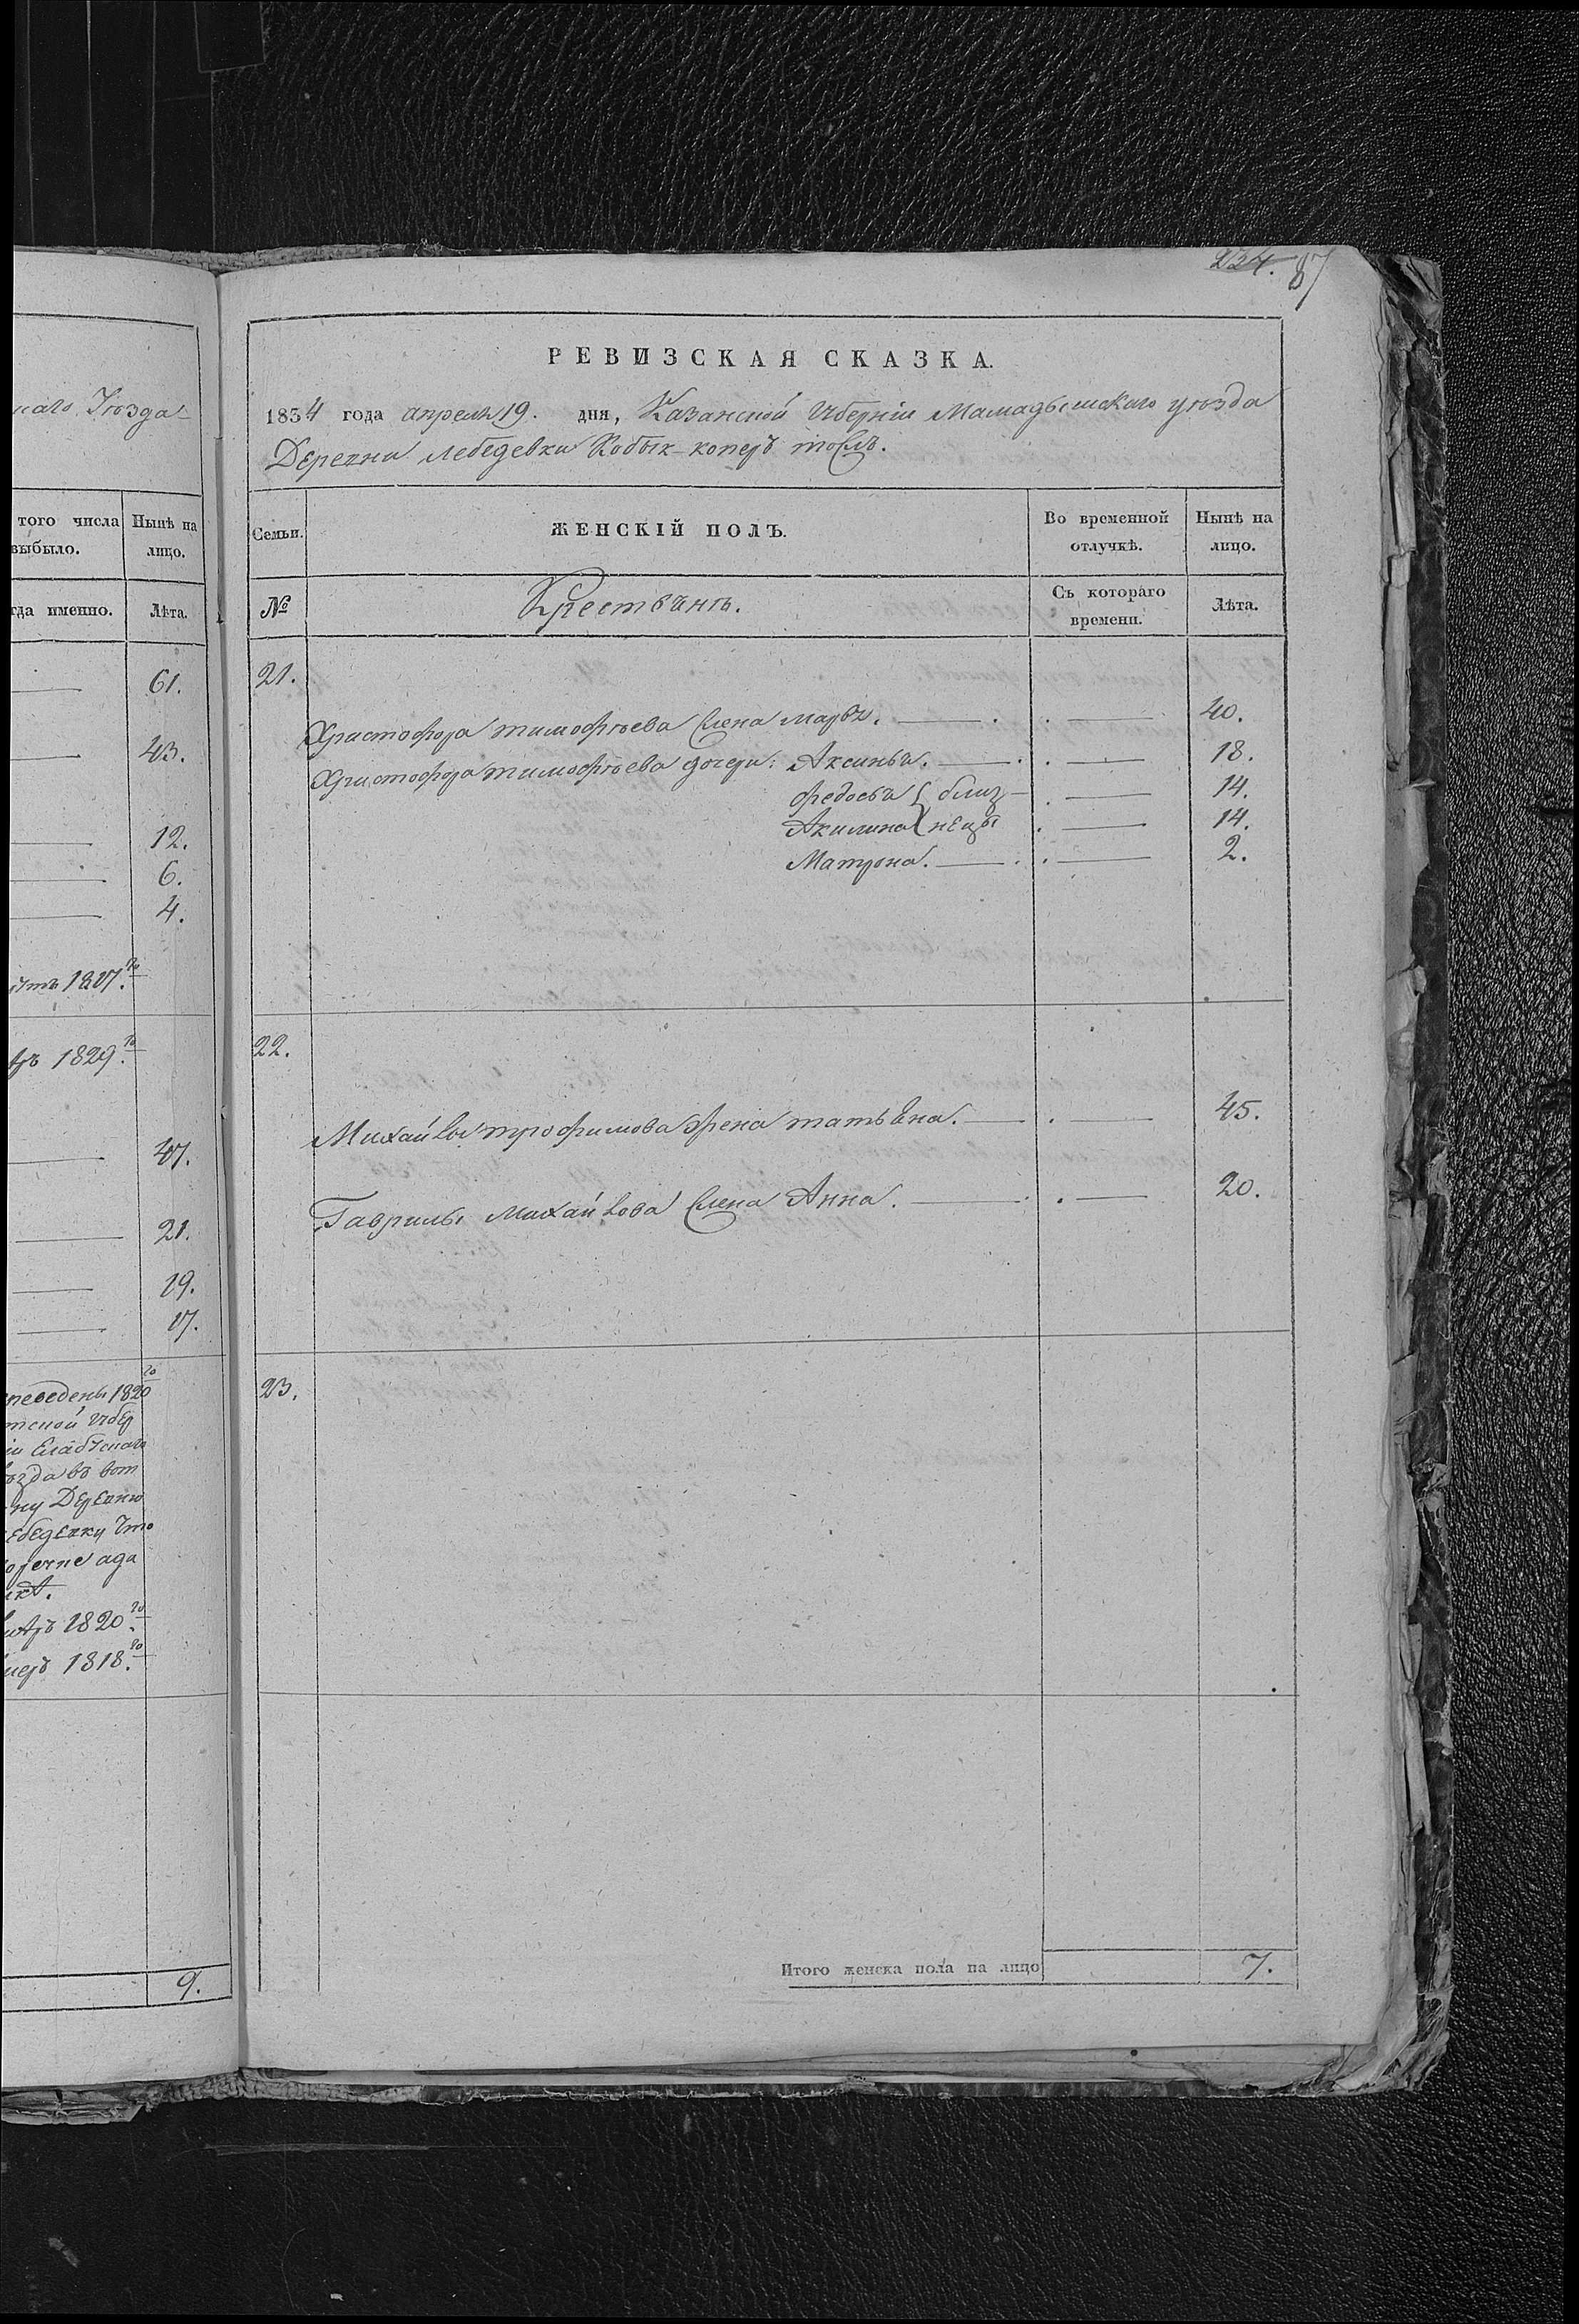 наго Уѣзда
того числа
выбыло.
Нынѣ на
лицо.
гда именно.
Лѣта.
61.
43.
12.
6.
4.
1827.го
1829.го
47.
21.
19.
17.
1820го
ской Губер
іи Елабускаго
ѣзда въ вот
ну Деревню
ебедевку что
1820.го
1818.го
9.
224. 87
РЕВИЗСКАЯ СКАЗКА.
1834 года апреля 19. дня, Казанской Губерніи Мамадышскаго уѣзда
Деревни лебедевки Кобык-копер тожъ.
Семьи.
ЖЕНСКІЙ ПОЛЪ.
Во временной
отлучкѣ.
Нынѣ на
лицо.
№
Крестьянѣ.
Съ котораго
времени.
Лѣта.
21.
Христофора тимофѣева жена марья. 40.
Христофора тимофѣева дочери: Аксинья. 18.
федосья { близ- 14.
Акилина { нецы 14.
Матрона. 2.
22.
Михайлы трофимова жена татьяна. 45.
Гаврилы михайлова жена Анна. 20.
23.
Итого женска пола на лицо 7.